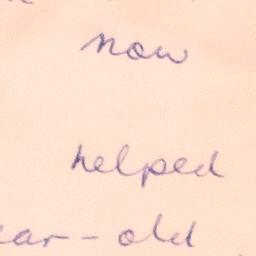 now
helped
ear-old